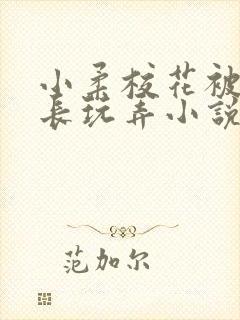 小柔校花被
长玩弄小説
范加尔